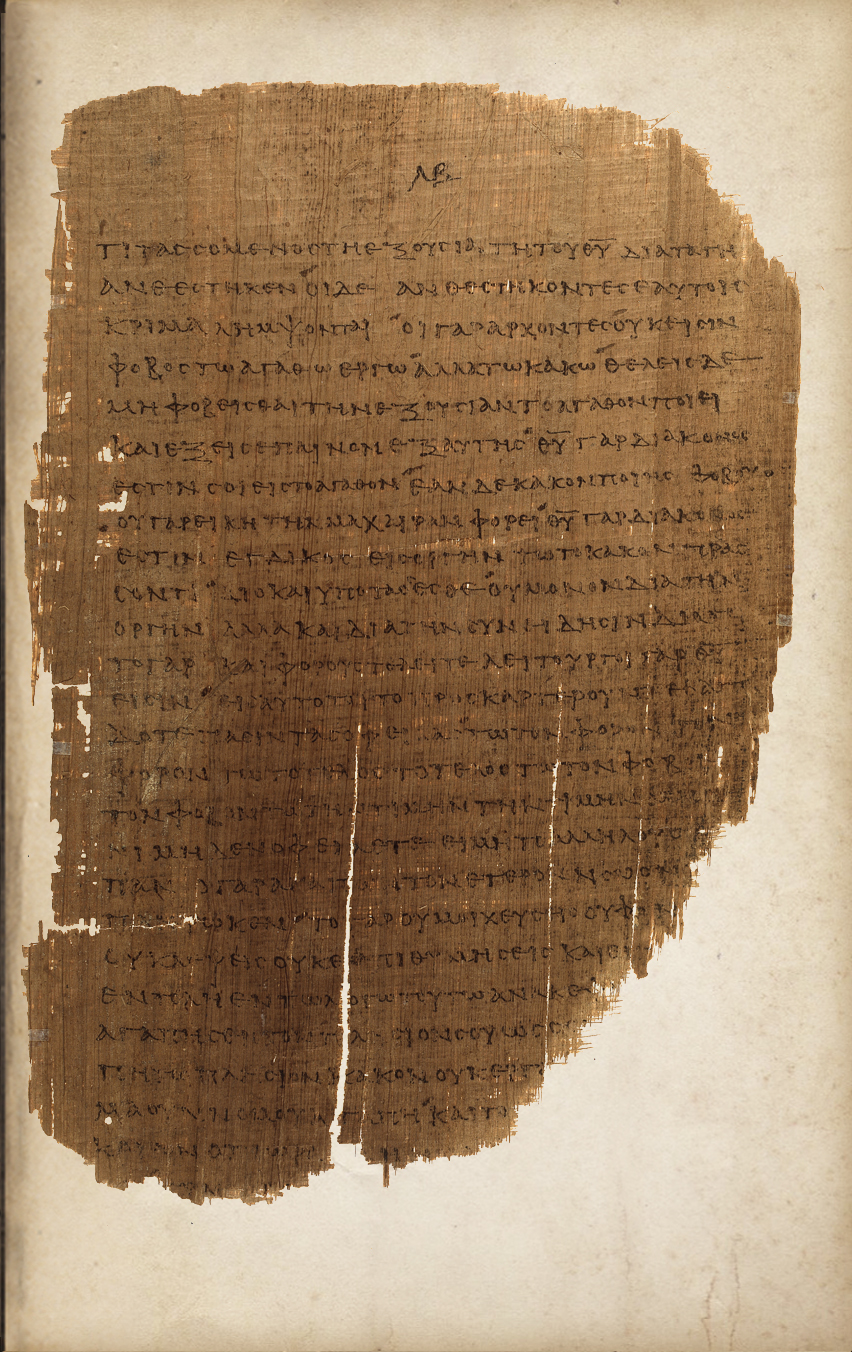 ΛΒ
ΤΙΤΑCCΟΜΕΝΟCΤΗΕΞΟΥCΙΑΤΗΤΟΥΘΥ̅ ΔΙΑΤΑΓΗ
ΑΝΘΕCΤΗΚΕΝ ΟΙΔΕ ΑΝΘΕCΤΗΚΟΝΤΕCΕΑΥΤΟΙC
ΚΡΙΜΑ ΛΗΜΨΟΝΤΑΙ ΟΙΓΑΡΑΡΧΟΝΤΕCΟΥΚΕΙCΙΝ
ΦΟΒΟCΤΩΑΓΑΘΩΕΡΓΩΑΛΛΑΤΩΚΑΚΩ ΘΕΛΕΙCΔΕ
ΜΗΦΟΒΕΙCΘΑΙΤΗΝΕΞΟΥCΙΑΝΤΟΑΓΑΘΟΝΠΟΙΕΙ
ΚΑΙΕΞΕΙCΕΠΑΙΝΟΝΕΞΑΥΤΗC ΘΥ̅ ΓΑΡΔΙΑΚΟΝΟC
ΕCΤΙΝCΟΙΕΙCΤΟΑΓΑΘΟΝ ΕΑΝΔΕΚΑΚΟΝΠΟΙΗC ΦΟΒΟΥ
ΟΥΓΑΡΕΙΚΗΤΗΝΜΑΧΑΙΡΑΝΦΟΡΕΙ ΘΥ̅ ΓΑΡΔΙΑΚΟΝΟC
ΕCΤΙΝ ΕΓΔΙΚΟC ΕΙCΟΡΓΗΝ ΤΩΤΟΚΑΚΟΝΠΡΑC
CΟΝΤΙ ΔΙΟΚΑΙΥΠΟΤΑCCΕCΘΕ ΟΥΜΟΝΟΝΔΙΑΤΗΝ
ΟΡΓΗΝ ΑΛΛΑΚΑΙΔΙΑΤΗΝCΥΝΙΔΗCΙΝΔΙΑ
ΤΟΓΑΡ ΚΑΙΦΟΡΟΥCΤΕΛΕΙΤΕ ΛΕΙΤΟΥΡΓΟΙΓΑΡΘΥ̅
ΕΙCΙΝ ΕΙCΑΥΤΟΤΟΥΤΟΠΡΟCΚΑΡΤΕΡΟΥ
ΔΟΤΕ ΠΑCΙΝΤΑCΟΦΕΙΛΑC ΤΩΤΟΝΦΟΡΟΝ
ΦΟΡΟΝ ΤΩΤΟΤΕΛΟCΤΟΤΕΛΟCΤΩΤΟΝΦΟΒ
ΤΟΝΦΟΒΟΝΤΩΤΗΝΤΙΜΗΝΤΗΝΤΙΜΗΝ
ΜΗΔΕΝΟΦΕΙΛΕΤΕ ΕΙΜΗΤΟΑΛΛΗΛΟΥC
ΓΑΡΑΓΑΠΩΝΤΟΝΕΤΕΡΟΝΝΟΜΟΝ
ΠΕΠΛΗΡΩΚΕΝ ΤΟΓΑΡΟΥΜΟΙΧΕΥCΕΙCΟΥΦΟΝ
ΟΥΚΛΕΨΕΙCΟΥΚΕΠΙΘΥΜΗCΕΙC ΚΑΙΕΙ
ΕΝΤΟΛΗΕΝΤΩΛΟΓΩΤΟΥΤΩΑΝΑΚΕ
ΑΓΑΠΗCΕΙCΤΟΝΠΛΗCΙΟΝCΟΥΩC
ΠΛΗCΙΟΝΚΑΚΟΝΟΥΚΕΡΓ
ΜΑΟΥΝΝΟΜΟΥΗΑΓΑΠΗ ΚΑΙΤΟ
ΚΑΙΡΟΝΟΤΙ